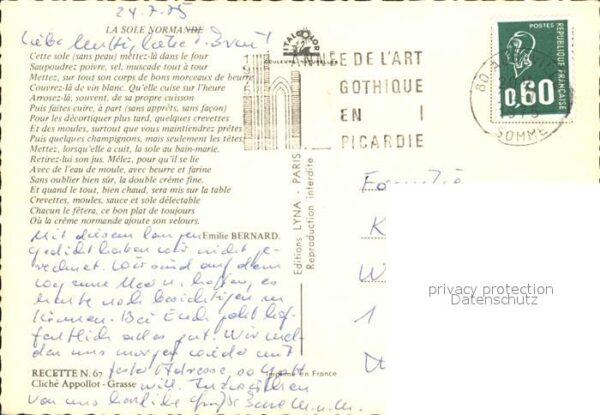 24.7.75
LA SOLE NORMANDE
Cette sole (sans peau) mettez-là dans le four
Saupoudrez poivre, sel, muscade tout à tour
Mettez, sur tout son corps de bons morceaux de beurre
Couvrez-là de vin blanc. Qu'elle cuise sur l'heure
Arrosez-là, souvent, de sa propre cuisson
Puis faites cuire, à part (sans apprêts, sans façon)
Pour les décortiquer plus tard, quelques crevettes
Et des moules, surtout que vous maintiendrez prêtes
Puis quelques champignons, mais seulement les têtes
Mettez, lorsqu'elle a cuit, la sole au bain-marie.
Retirez-lui son jus. Mêlez, pour qu'il se lie
Avec de l'eau de moule, avec beurre et farine
Sans oublier bien sûr, la double crème fine.
Et quand le tout, bien chaud, sera mis sur la table
Crevettes, moules, sauce et sole délectable
Chacun le fêtera, ce bon plat de toujours
Où la crème normande ajoute son velours.
Emilie BERNARD.
Mit diesem langen
Gedicht haben wir nicht ge-
rechnet. Wir sind auf dem
Weg zum Meer u. hoffen, es
heute noch besichtigen zu
können. Bei Euch geht hof-
fentlich alles gut. Wir
uns morgen wieder mit
fester Adresse, so Gott
will.
von uns
RECETTE N. 67
Cliché Appollot - Grasse
Imprimé en France
Editions LYNA - PARIS
Reproduction interdite
DE L'ART
GOTHIQUE
EN
PICARDIE
80
SOMME
POSTES
0,60
REPUBLIQUE FRANÇAISE
K
W
1
privacy protection
Datenschutz